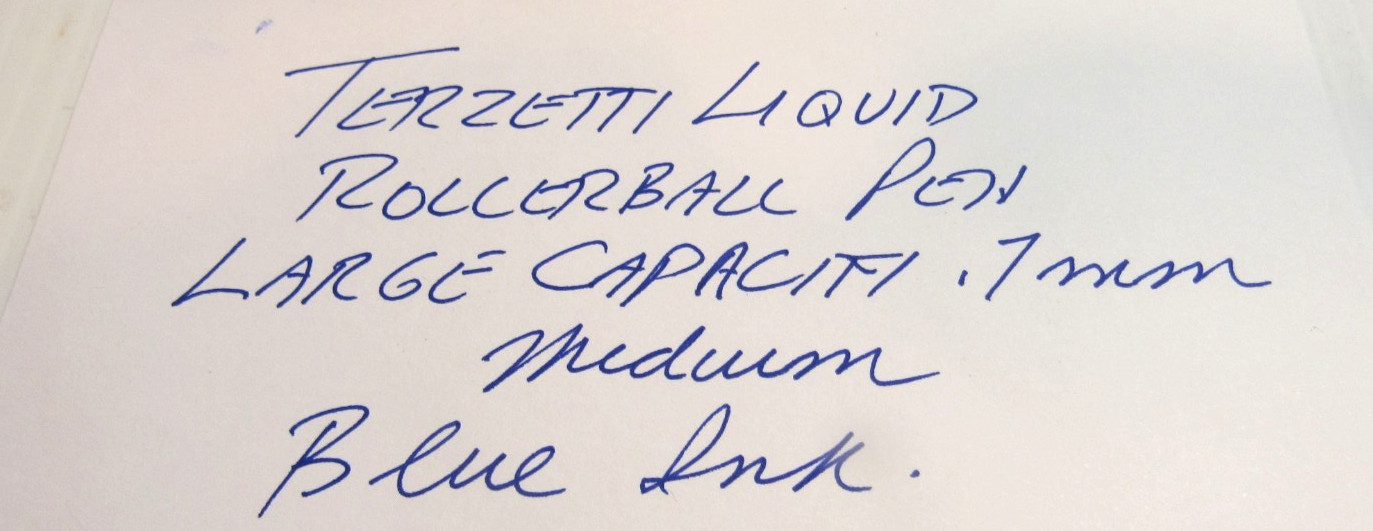 TERZETTI LIQUID
ROLLERBALL PEN
LARGE CAPACITY .7mm
medium
Blue Ink.